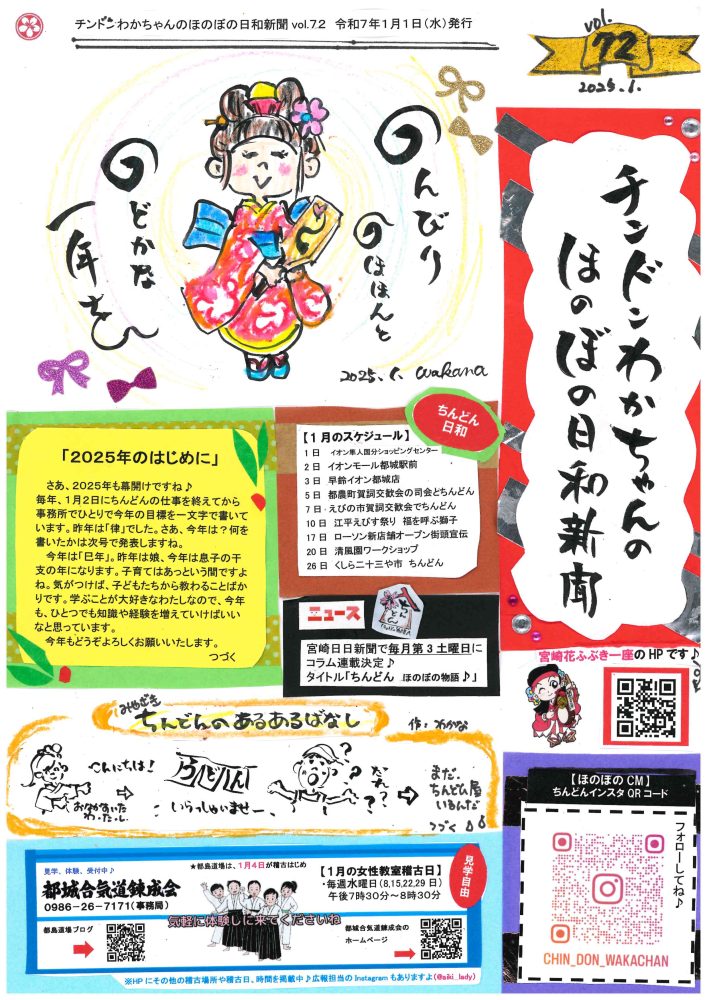 チンドンわかちゃんのほのぼの日和新聞 vol.72　令和7年1月1日(水)発行
vol.
72
2025.1.
チンドンわかちゃんの
ほのぼの日和新聞
のんびり
のほほんと
のどかな
一年を
2025.1. wakana
「2025年のはじめに」
さあ、2025年も幕開けですね♪
毎年、1月2日にちんどんの仕事を終えてから
事務所でひとりで今年の目標を一文字で書いて
います。昨年は「律」でした。さあ、今年は?何を
書いたかは次号で発表しますね。
今年は「巳年」。昨年は娘、今年は息子の干
支の年になります。子育てはあっという間ですよ
ね。気がつけば、子どもたちから教わることばか
りです。学ぶことが大好きなわたしなので、今年
も、ひとつでも知識や経験を増えていけばいい
なと思っています。
今年もどうぞよろしくお願いいたします。
つづく
ちんどん
日和
【1月のスケジュール】
1日 イオン隼人国分ショッピングセンター
2日 イオンモール都城駅前
3日 早鈴イオン都城店
5日 都農町賀詞交歓会の司会とちんどん
7日 えびの市賀詞交歓会でちんどん
10日 江平えびす祭り 福を呼ぶ獅子
17日 ローソン新店舗オープン街頭宣伝
20日 清風園ワークショップ
26日 くしら二十三や市 ちんどん
ニュース
ちんどん
宮崎日日新聞で毎月第3土曜日に
コラム連載決定♪
タイトル「ちんどん ほのぼの物語♪」
宮崎花ふぶき一座のHPです♪
みやざき
ちんどんのあるあるばなし
作:わかな
こんにちは!
おなかすいた
わ・た・し
うどん
いらっしゃいませー
なぁに?
まだ、
ちんどん屋
いるんだ
つづく
【ほのぼのCM】
ちんどんインスタQRコード
フォローしてね♪
CHIN_DON_WAKACHAN
見学、体験、受付中♪
★都島道場は、1月4日が稽古はじめ
都城合気道錬成会
0986-26-7171(事務局)
【1月の女性教室稽古日】
・毎週水曜日(8,15,22,29日)
午後7時30分~8時30分
見学自由
気軽に体験しに来てくださいね
都島道場ブログ
都城合気道錬成会の
ホームページ
※HPにその他の稽古場所や稽古日、時間を掲載中♪広報担当のInstagramもありますよ(@aiki_lady)